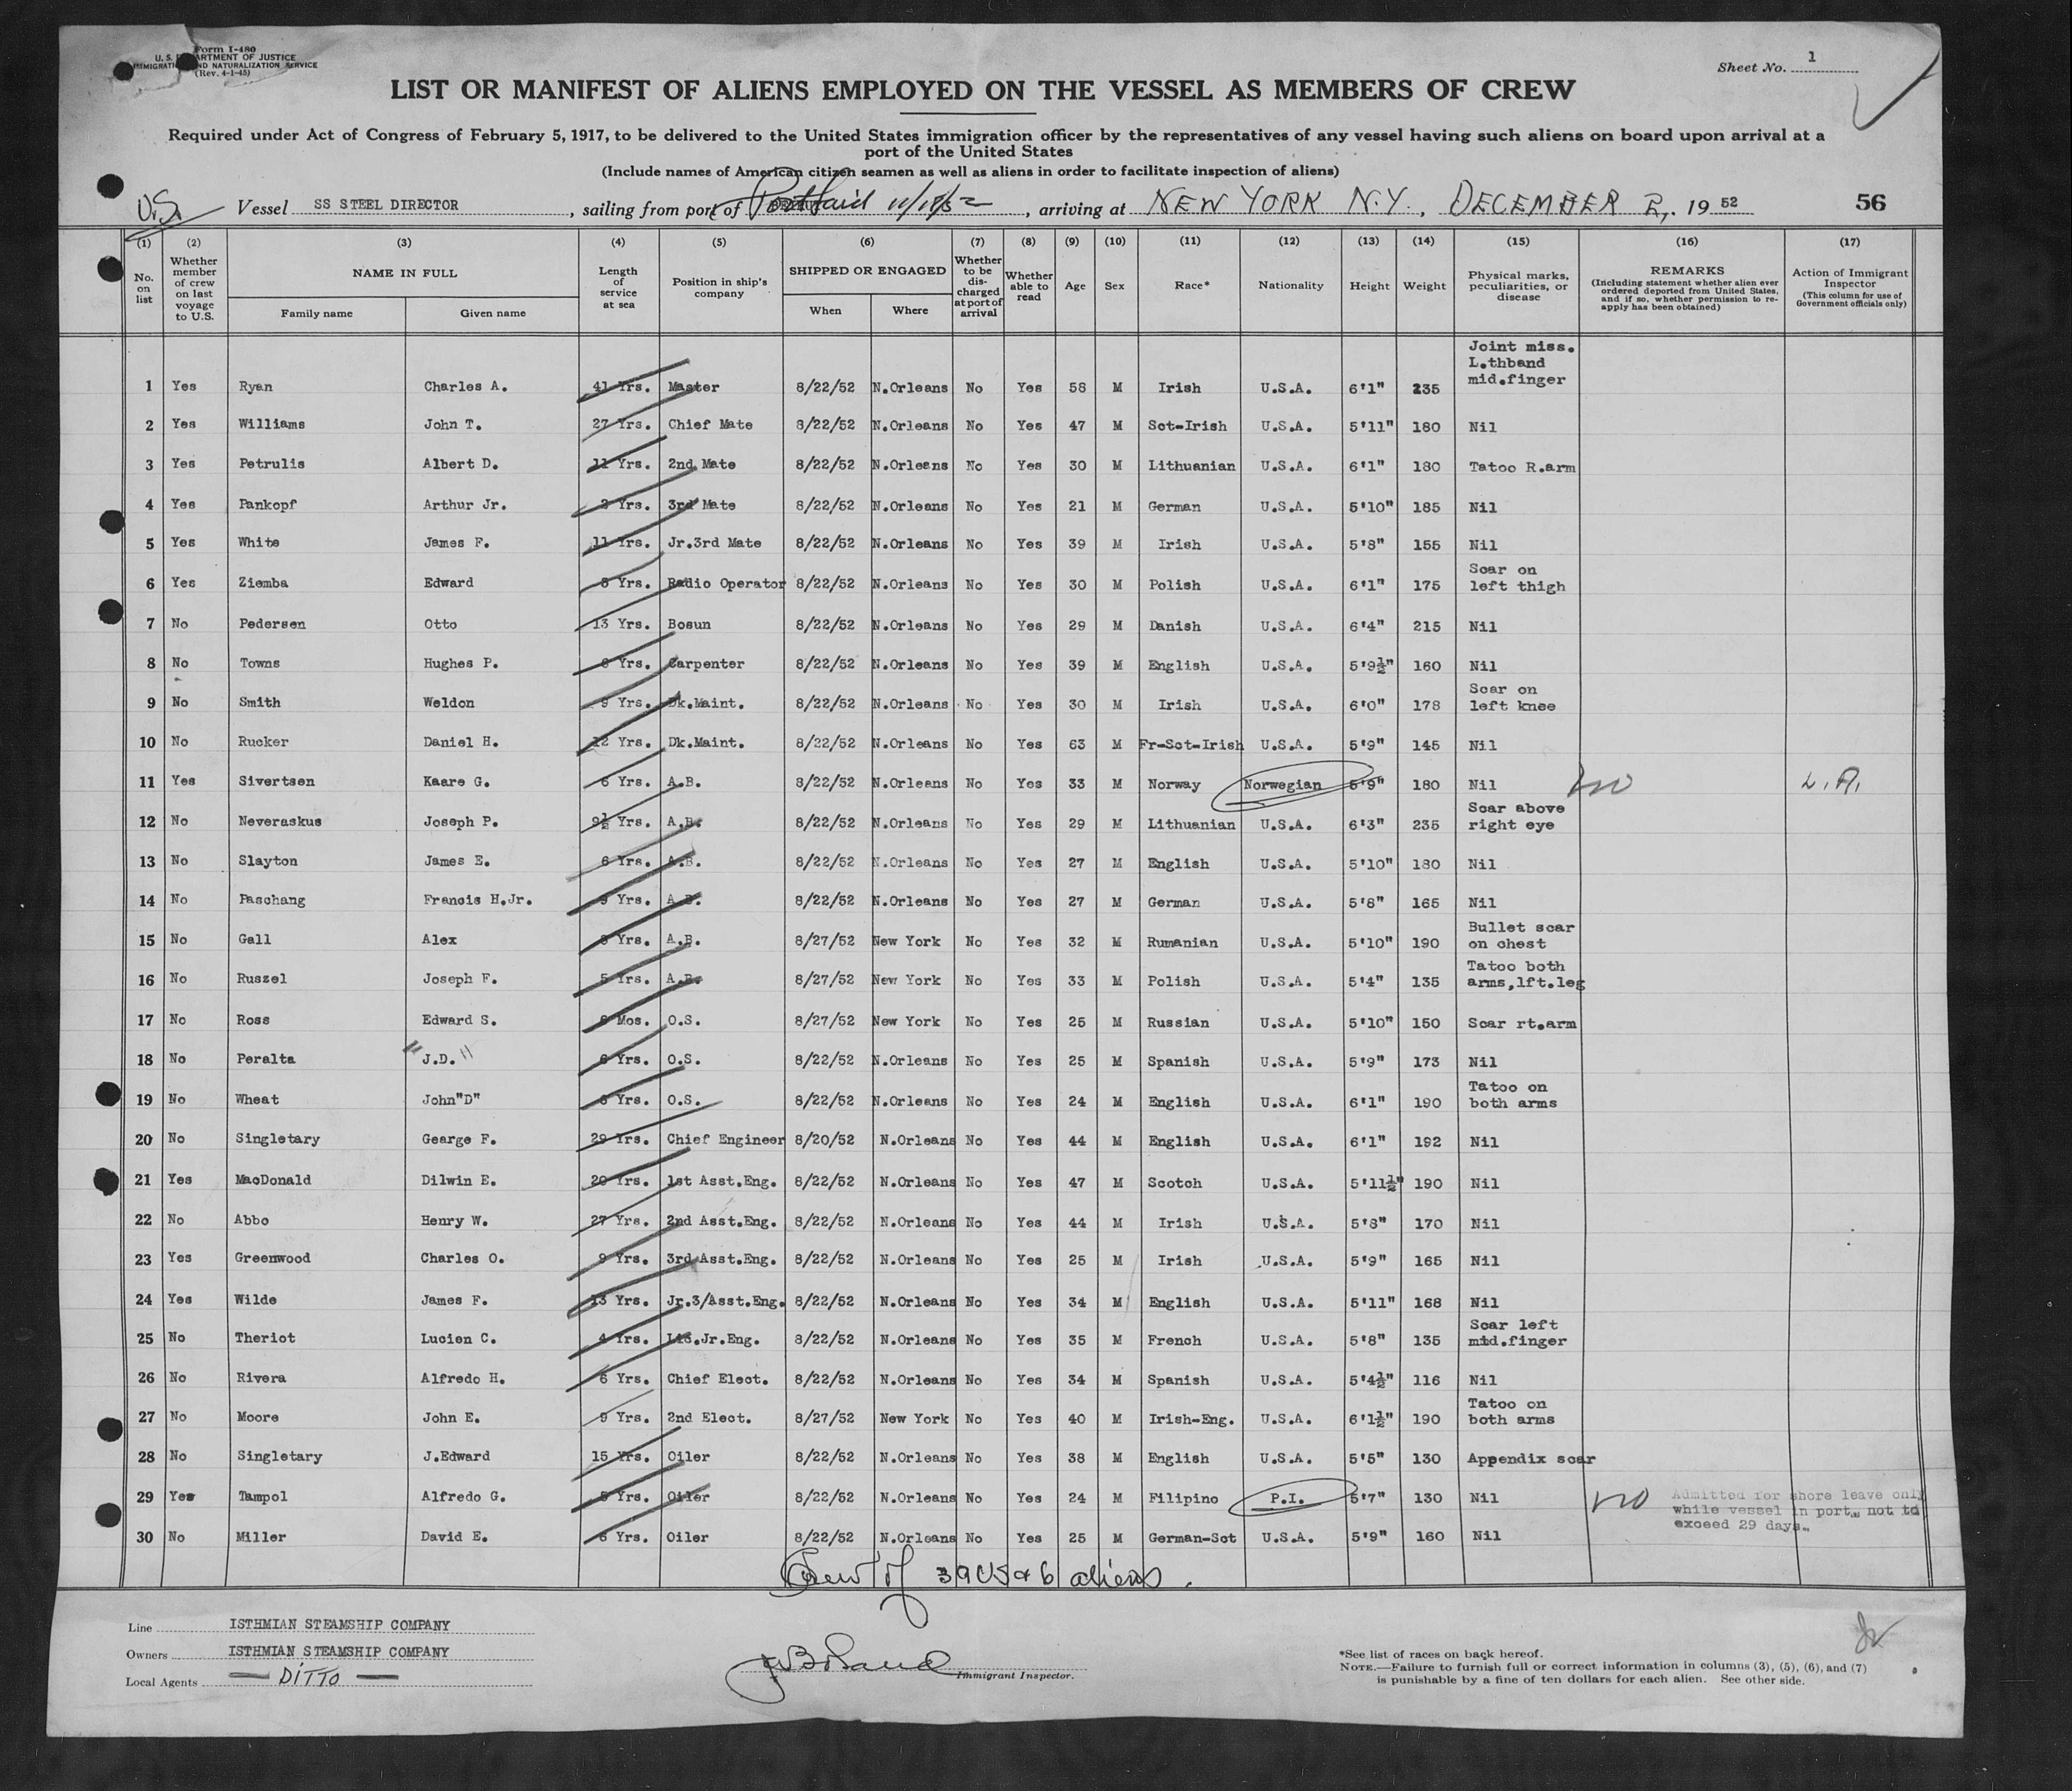 Form I-480
U. S. DEPARTMENT OF JUSTICE
IMMIGRATION AND NATURALIZATION SERVICE
(Rev. 4-1-45)
Sheet No. 1
LIST OR MANIFEST OF ALIENS EMPLOYED ON THE VESSEL AS MEMBERS OF CREW
Required under Act of Congress of February 5, 1917, to be delivered to the United States immigration officer by the representatives of any vessel having such aliens on board upon arrival at a
port of the United States
(Include names of American citizen seamen as well as aliens in order to facilitate inspection of aliens)
U.S. Vessel SS STEEL DIRECTOR, sailing from port of Port Said 11/18/52, arriving at NEW YORK N.Y., DECEMBER 2, 1952 56
(1) (2) (3) (4) (5) (6) (7) (8) (9) (10) (11) (12) (13) (14) (15) (16) (17)
No. on list Whether member of crew on last voyage to U.S. NAME IN FULL Family name Given name Length of service at sea Position in ship's company SHIPPED OR ENGAGED When Where Whether to be discharged at port of arrival Whether able to read Age Sex Race* Nationality Height Weight Physical marks, peculiarities, or disease REMARKS (Including statement whether alien ever ordered deported from United States, and if so, whether permission to re-apply has been obtained) Action of Immigrant Inspector (This column for use of Government officials only)
1 Yes Ryan Charles A. 41 Yrs. Master 8/22/52 N.Orleans No Yes 58 M Irish U.S.A. 6'1" 235 Joint miss. L.thband mid.finger
2 Yes Williams John T. 27 Yrs. Chief Mate 8/22/52 N.Orleans No Yes 47 M Sct-Irish U.S.A. 5'11" 180 Nil
3 Yes Petrulis Albert D. 11 Yrs. 2nd Mate 8/22/52 N.Orleans No Yes 30 M Lithuanian U.S.A. 6'1" 180 Tatoo R.arm
4 Yes Pankopf Arthur Jr. Yrs. 3rd Mate 8/22/52 N.Orleans No Yes 21 M German U.S.A. 5'10" 185 Nil
5 Yes White James F. 11 Yrs. Jr.3rd Mate 8/22/52 N.Orleans No Yes 39 M Irish U.S.A. 5'8" 155 Nil
6 Yes Ziemba Edward Yrs. Radio Operator 8/22/52 N.Orleans No Yes 30 M Polish U.S.A. 6'1" 175 Scar on left thigh
7 No Pedersen Otto 13 Yrs. Bosun 8/22/52 N.Orleans No Yes 29 M Danish U.S.A. 6'4" 215 Nil
8 No Towns Hughes P. Yrs. Carpenter 8/22/52 N.Orleans No Yes 39 M English U.S.A. 5'9½" 160 Nil
9 No Smith Weldon 9 Yrs. Dk.Maint. 8/22/52 N.Orleans No Yes 30 M Irish U.S.A. 6'0" 178 Scar on left knee
10 No Rucker Daniel H. 12 Yrs. Dk.Maint. 8/22/52 N.Orleans No Yes 63 M Fr-Sct-Irish U.S.A. 5'9" 145 Nil
11 Yes Sivertsen Kaare G. 6 Yrs. A.B. 8/22/52 N.Orleans No Yes 33 M Norway Norwegian 5'9" 180 Nil no L.A.
12 No Neveraskus Joseph P. 9½ Yrs. A.B. 8/22/52 N.Orleans No Yes 29 M Lithuanian U.S.A. 6'3" 235 Scar above right eye
13 No Slayton James E. 6 Yrs. A.B. 8/22/52 N.Orleans No Yes 27 M English U.S.A. 5'10" 180 Nil
14 No Paschang Francis H.Jr. Yrs. A.B. 8/22/52 N.Orleans No Yes 27 M German U.S.A. 5'8" 165 Nil
15 No Gall Alex Yrs. A.B. 8/27/52 New York No Yes 32 M Rumanian U.S.A. 5'10" 190 Bullet scar on chest
16 No Ruszel Joseph F. 5 Yrs. A.B. 8/27/52 New York No Yes 33 M Polish U.S.A. 5'4" 135 Tatoo both arms,lft.leg
17 No Ross Edward S. Mos. O.S. 8/27/52 New York No Yes 25 M Russian U.S.A. 5'10" 150 Scar rt.arm
18 No Peralta "J.D." 6 Yrs. O.S. 8/22/52 N.Orleans No Yes 25 M Spanish U.S.A. 5'9" 173 Nil
19 No Wheat John"D" Yrs. O.S. 8/22/52 N.Orleans No Yes 24 M English U.S.A. 6'1" 190 Tatoo on both arms
20 No Singletary Gearge F. 29 Yrs. Chief Engineer 8/20/52 N.Orleans No Yes 44 M English U.S.A. 6'1" 192 Nil
21 Yes MacDonald Dilwin E. 20 Yrs. 1st Asst.Eng. 8/22/52 N.Orleans No Yes 47 M Scotch U.S.A. 5'11½" 190 Nil
22 No Abbo Henry W. 27 Yrs. 2nd Asst.Eng. 8/22/52 N.Orleans No Yes 44 M Irish U.S.A. 5'8" 170 Nil
23 Yes Greenwood Charles O. 9 Yrs. 3rd Asst.Eng. 8/22/52 N.Orleans No Yes 25 M Irish U.S.A. 5'9" 165 Nil
24 Yes Wilde James F. 13 Yrs. Jr.3/Asst.Eng. 8/22/52 N.Orleans No Yes 34 M English U.S.A. 5'11" 168 Nil
25 No Theriot Lucien C. 4 Yrs. Lic.Jr.Eng. 8/22/52 N.Orleans No Yes 35 M French U.S.A. 5'8" 135 Scar left mid.finger
26 No Rivera Alfredo H. 6 Yrs. Chief Elect. 8/22/52 N.Orleans No Yes 34 M Spanish U.S.A. 5'4½" 116 Nil
27 No Moore John E. 9 Yrs. 2nd Elect. 8/27/52 New York No Yes 40 M Irish-Eng. U.S.A. 6'1½" 190 Tatoo on both arms
28 No Singletary J.Edward 15 Yrs. Oiler 8/22/52 N.Orleans No Yes 38 M English U.S.A. 5'5" 130 Appendix scar
29 Yes Tampol Alfredo G. Yrs. Oiler 8/22/52 N.Orleans No Yes 24 M Filipino P.I. 5'7" 130 Nil no Admitted for shore leave only while vessel in port, not to exceed 29 days.
30 No Miller David E. 6 Yrs. Oiler 8/22/52 N.Orleans No Yes 25 M German-Sct U.S.A. 5'9" 160 Nil
Crew of 39 US & 6 aliens.
Line ISTHMIAN STEAMSHIP COMPANY
Owners ISTHMIAN STEAMSHIP COMPANY
Local Agents — DITTO —
Immigrant Inspector.
*See list of races on back hereof.
NOTE.—Failure to furnish full or correct information in columns (3), (5), (6), and (7)
is punishable by a fine of ten dollars for each alien. See other side.